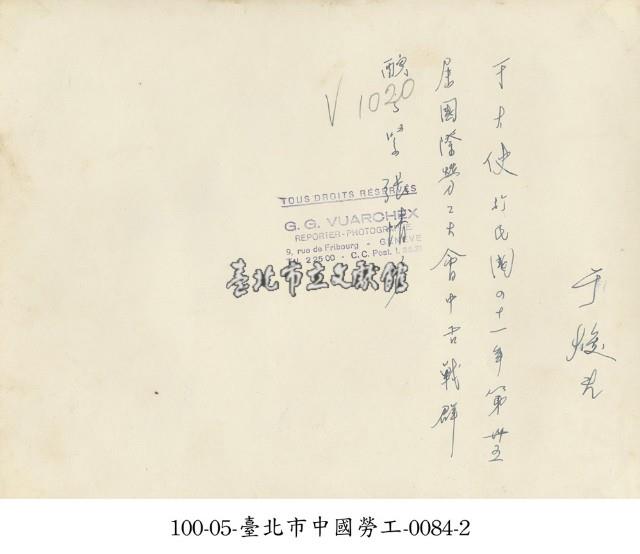 于焌吉
于大使於民國四十一年第卅五
屆國際勞工大會中舌戰群
醜之緊張情形
V 1020
TOUS DROITS RÉSERVÉS
G. G. VUARCHEX
REPORTER-PHOTOGRAPHE
9, rue de Fribourg - GENÈVE
Tél. 2 25 00 - C. C. Post.
臺北市立文獻館
100-05-臺北市中國勞工-0084-2